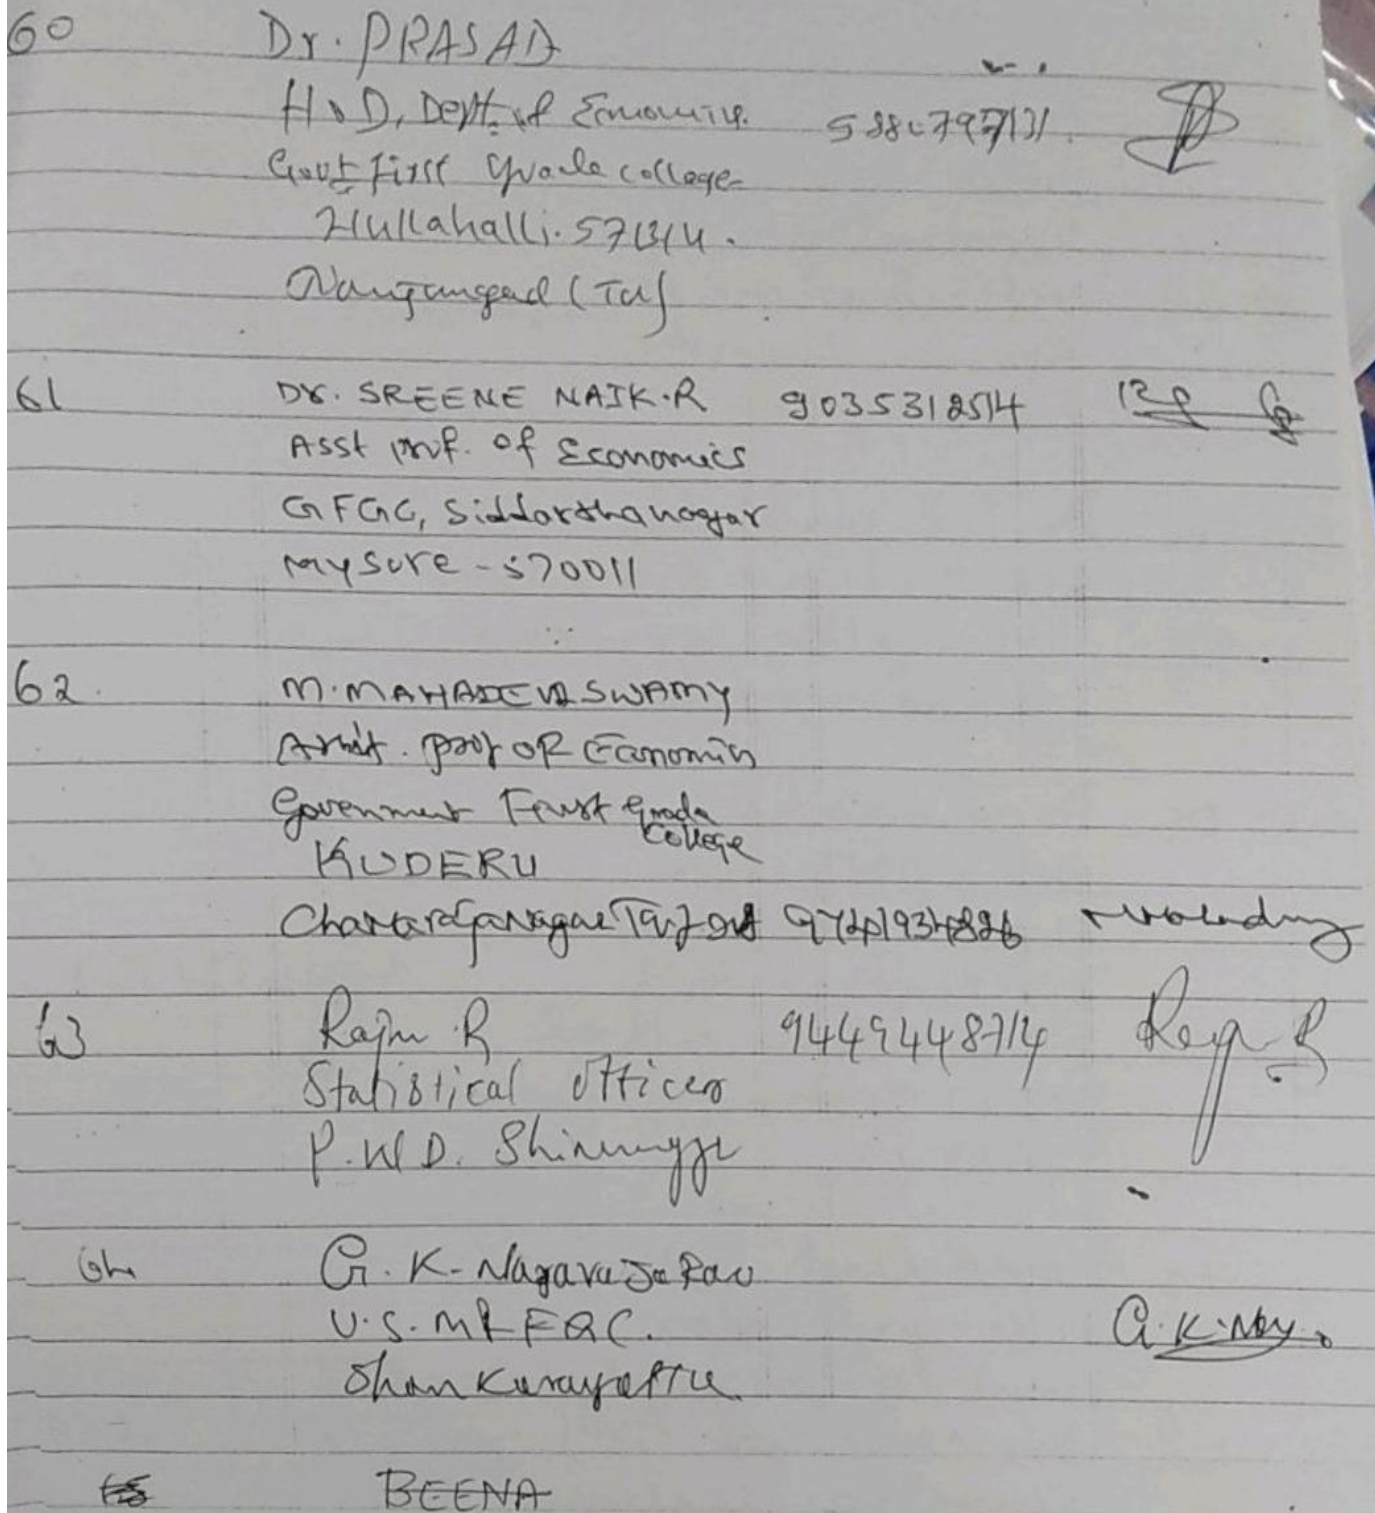 60 Dr. PRASAD
H.O.D, Dept. of Economics.
Govt First Grade College
Hullahalli. 571314.
Nanjangud (Tu)
61 Dr. SREENE NAIK.R 9035312514
Asst prof. of Economics
GFGC, Siddarthanagar
Mysore - 570011
62. M. MAHADEVASWAMY
Assit. Prof of Economics
Government First Grade
College
KUDERU
63 Raju R 9449448714
Statistical Officer
P.W.D. Shivamogga
64 G. K. Nagaraja Rao
U.S.
G.K.Nay.
65 BEENA